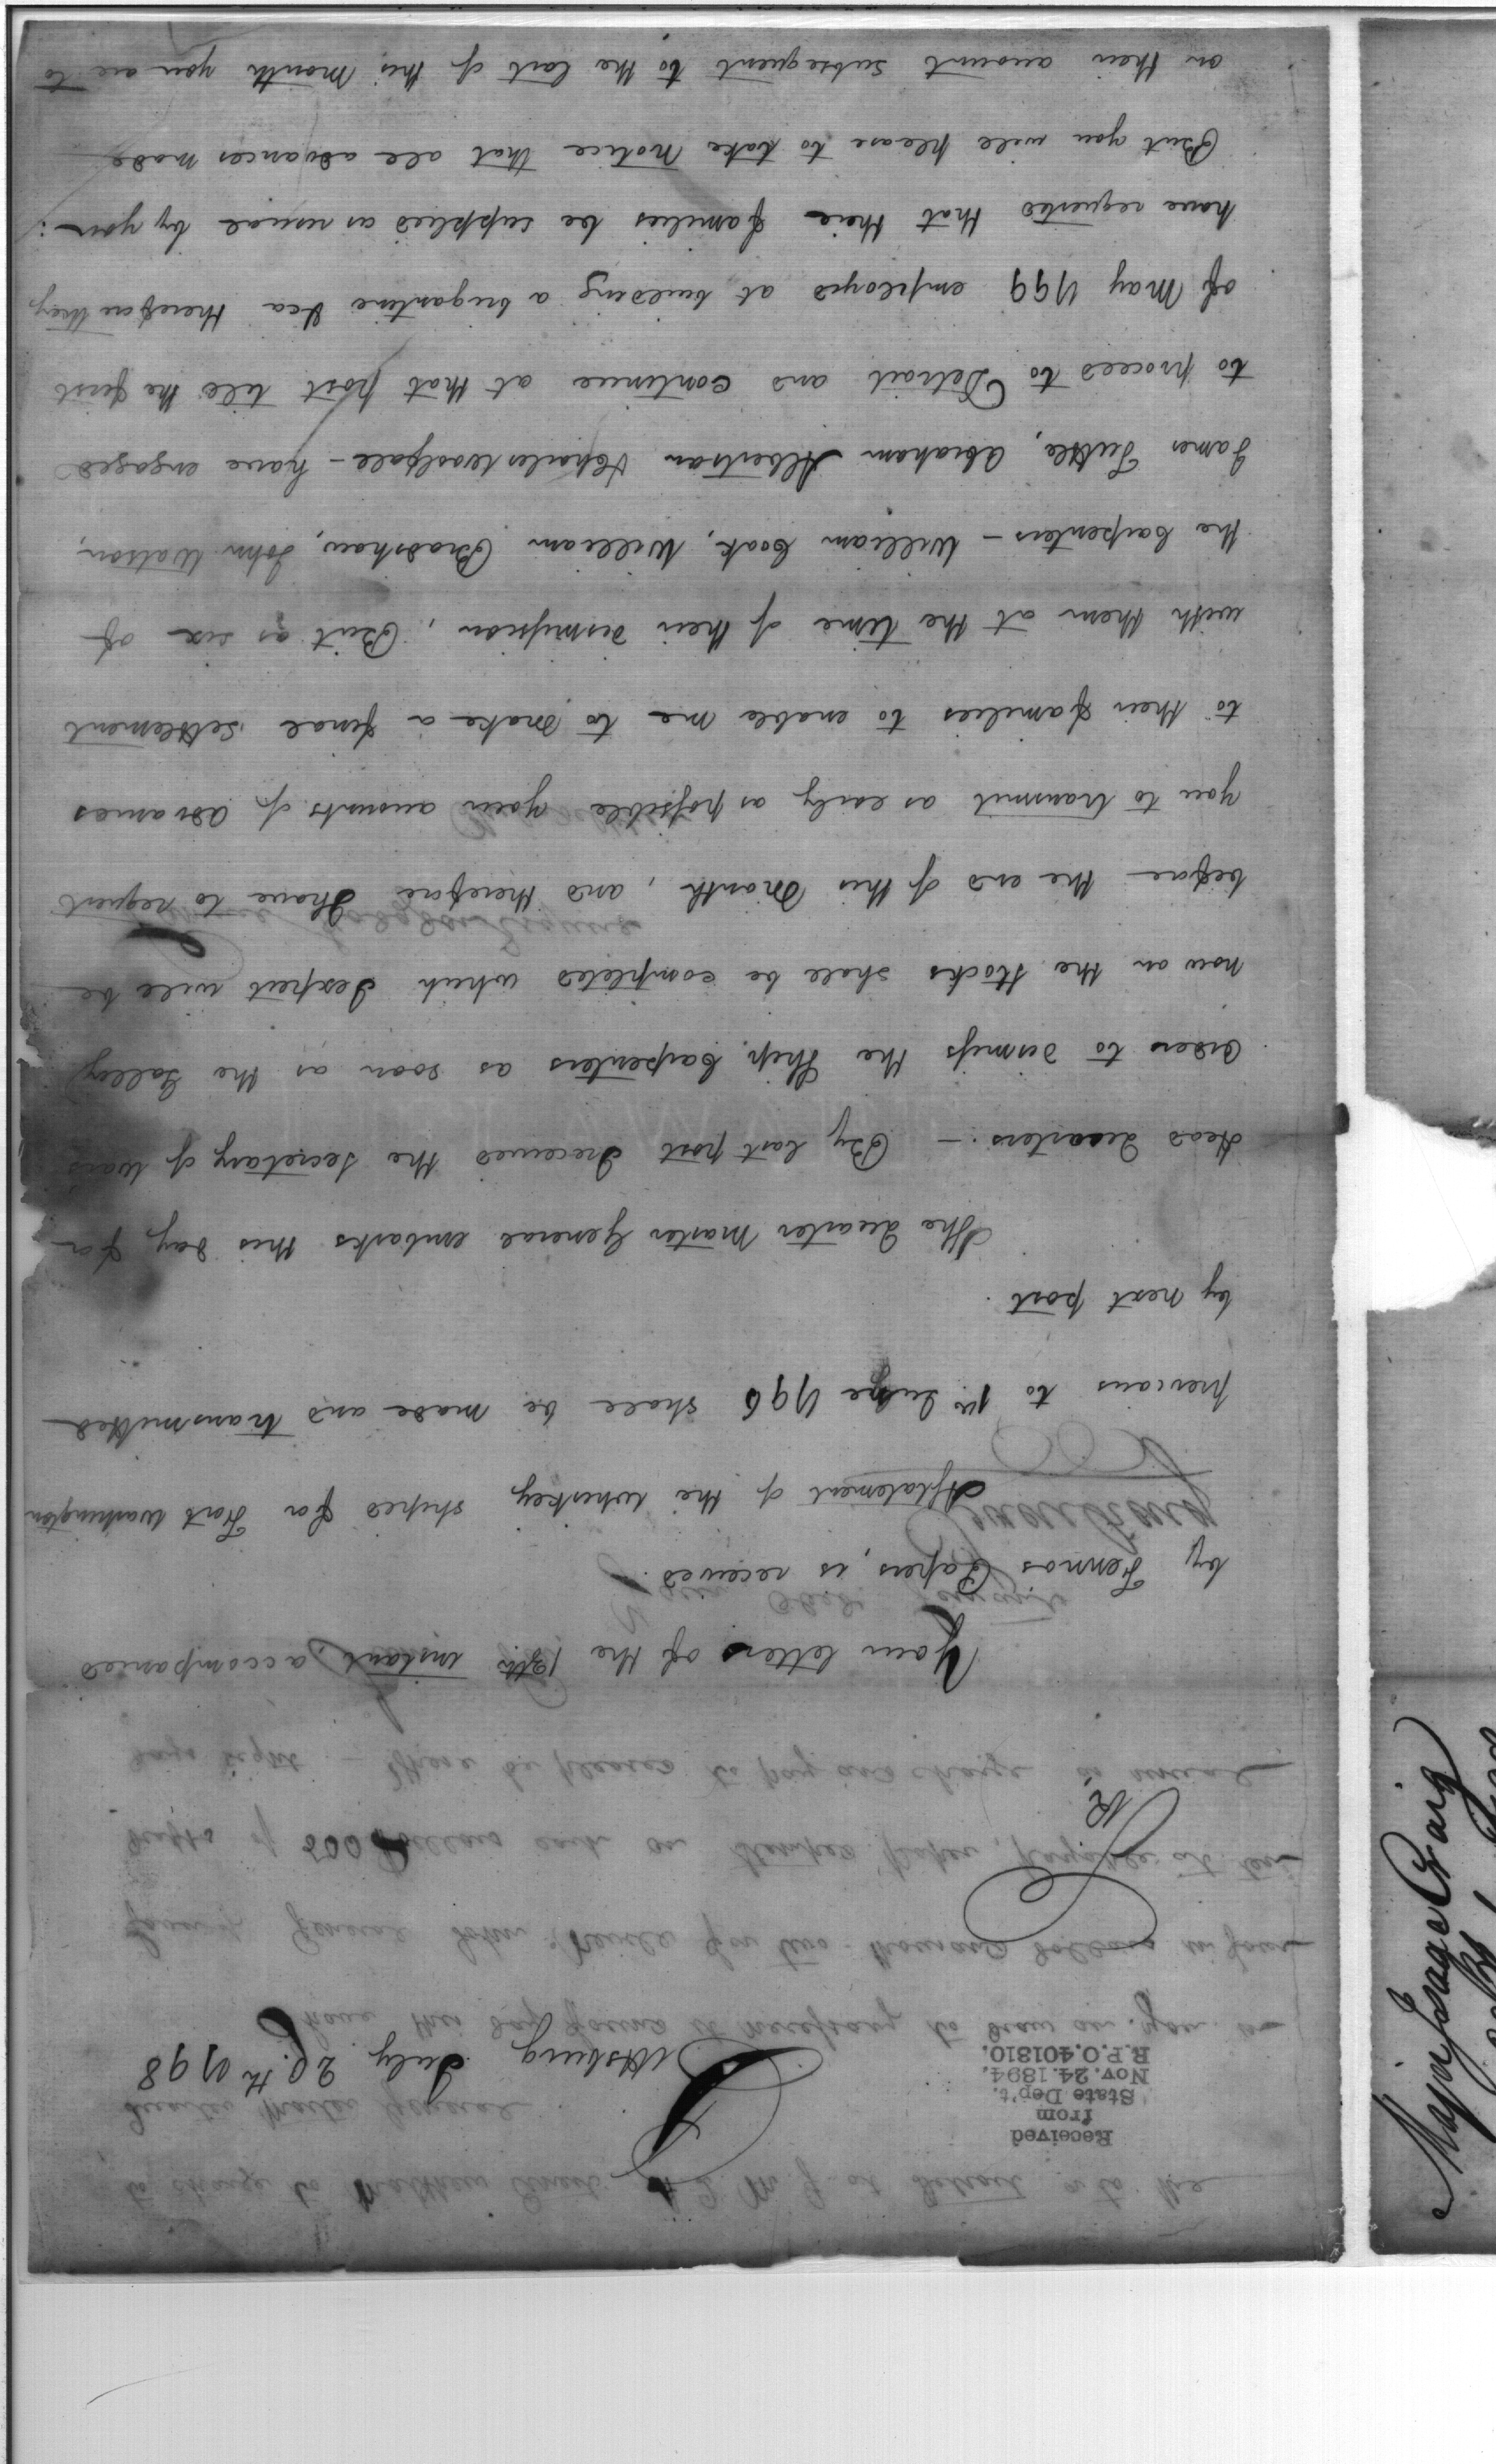 Received
from
State Dep't.
Nov. 24. 1894,
R.P.O. 401810.
Pittsburg July 20th 1798
Sir
Your letter of the 12th instant, accompanied
by Fennos Papers, is received.
A statement of the Whiskey shiped for Fort Washington
previous to 1st June 1796 shall be made and transmitted
by next post.
The Quarter Master General embarks this day for
Head Quarters. — By last post I received the Secretary of Wars
orders to dismiss the Ship Carpenters as soon as the Galley
now on the Stocks shall be completed which I expect will be
before the end of this Month, and therefore I have to request
you to transmit as early as possible your amounts of advances
to their families to enable me to make a final settlement
with them at the time of their dismission; But as six of
the Carpenters — William Cook, William Bradshaw, John Watson,
James Tuttle, Abraham Albertson & Charles Woolfall — have engaged
to proceed to Detroit and continue at that post till the first
of May 1799 employed at building a brigantine &ca therefore they
have requested that their families be supplied as usual by you:
But you will please to take notice that all advances made
on their amount subsequent to the last of this month you are to
Major Isaac Craig